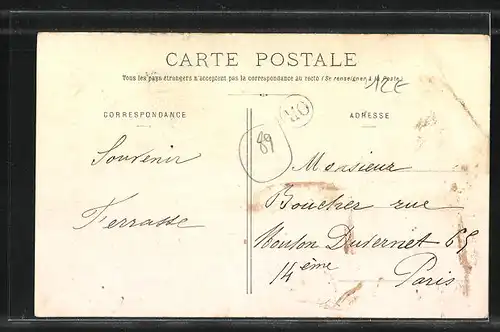 CARTE POSTALE
Tous les pays étrangers n'acceptent pas la correspondance au recto (Se renseigner à la Poste)
CORRESPONDANCE
ADRESSE
Souvenir
Terrasse
OR
Monsieur
Boucher rue
Mouton Duvernet 65
14ème
Paris